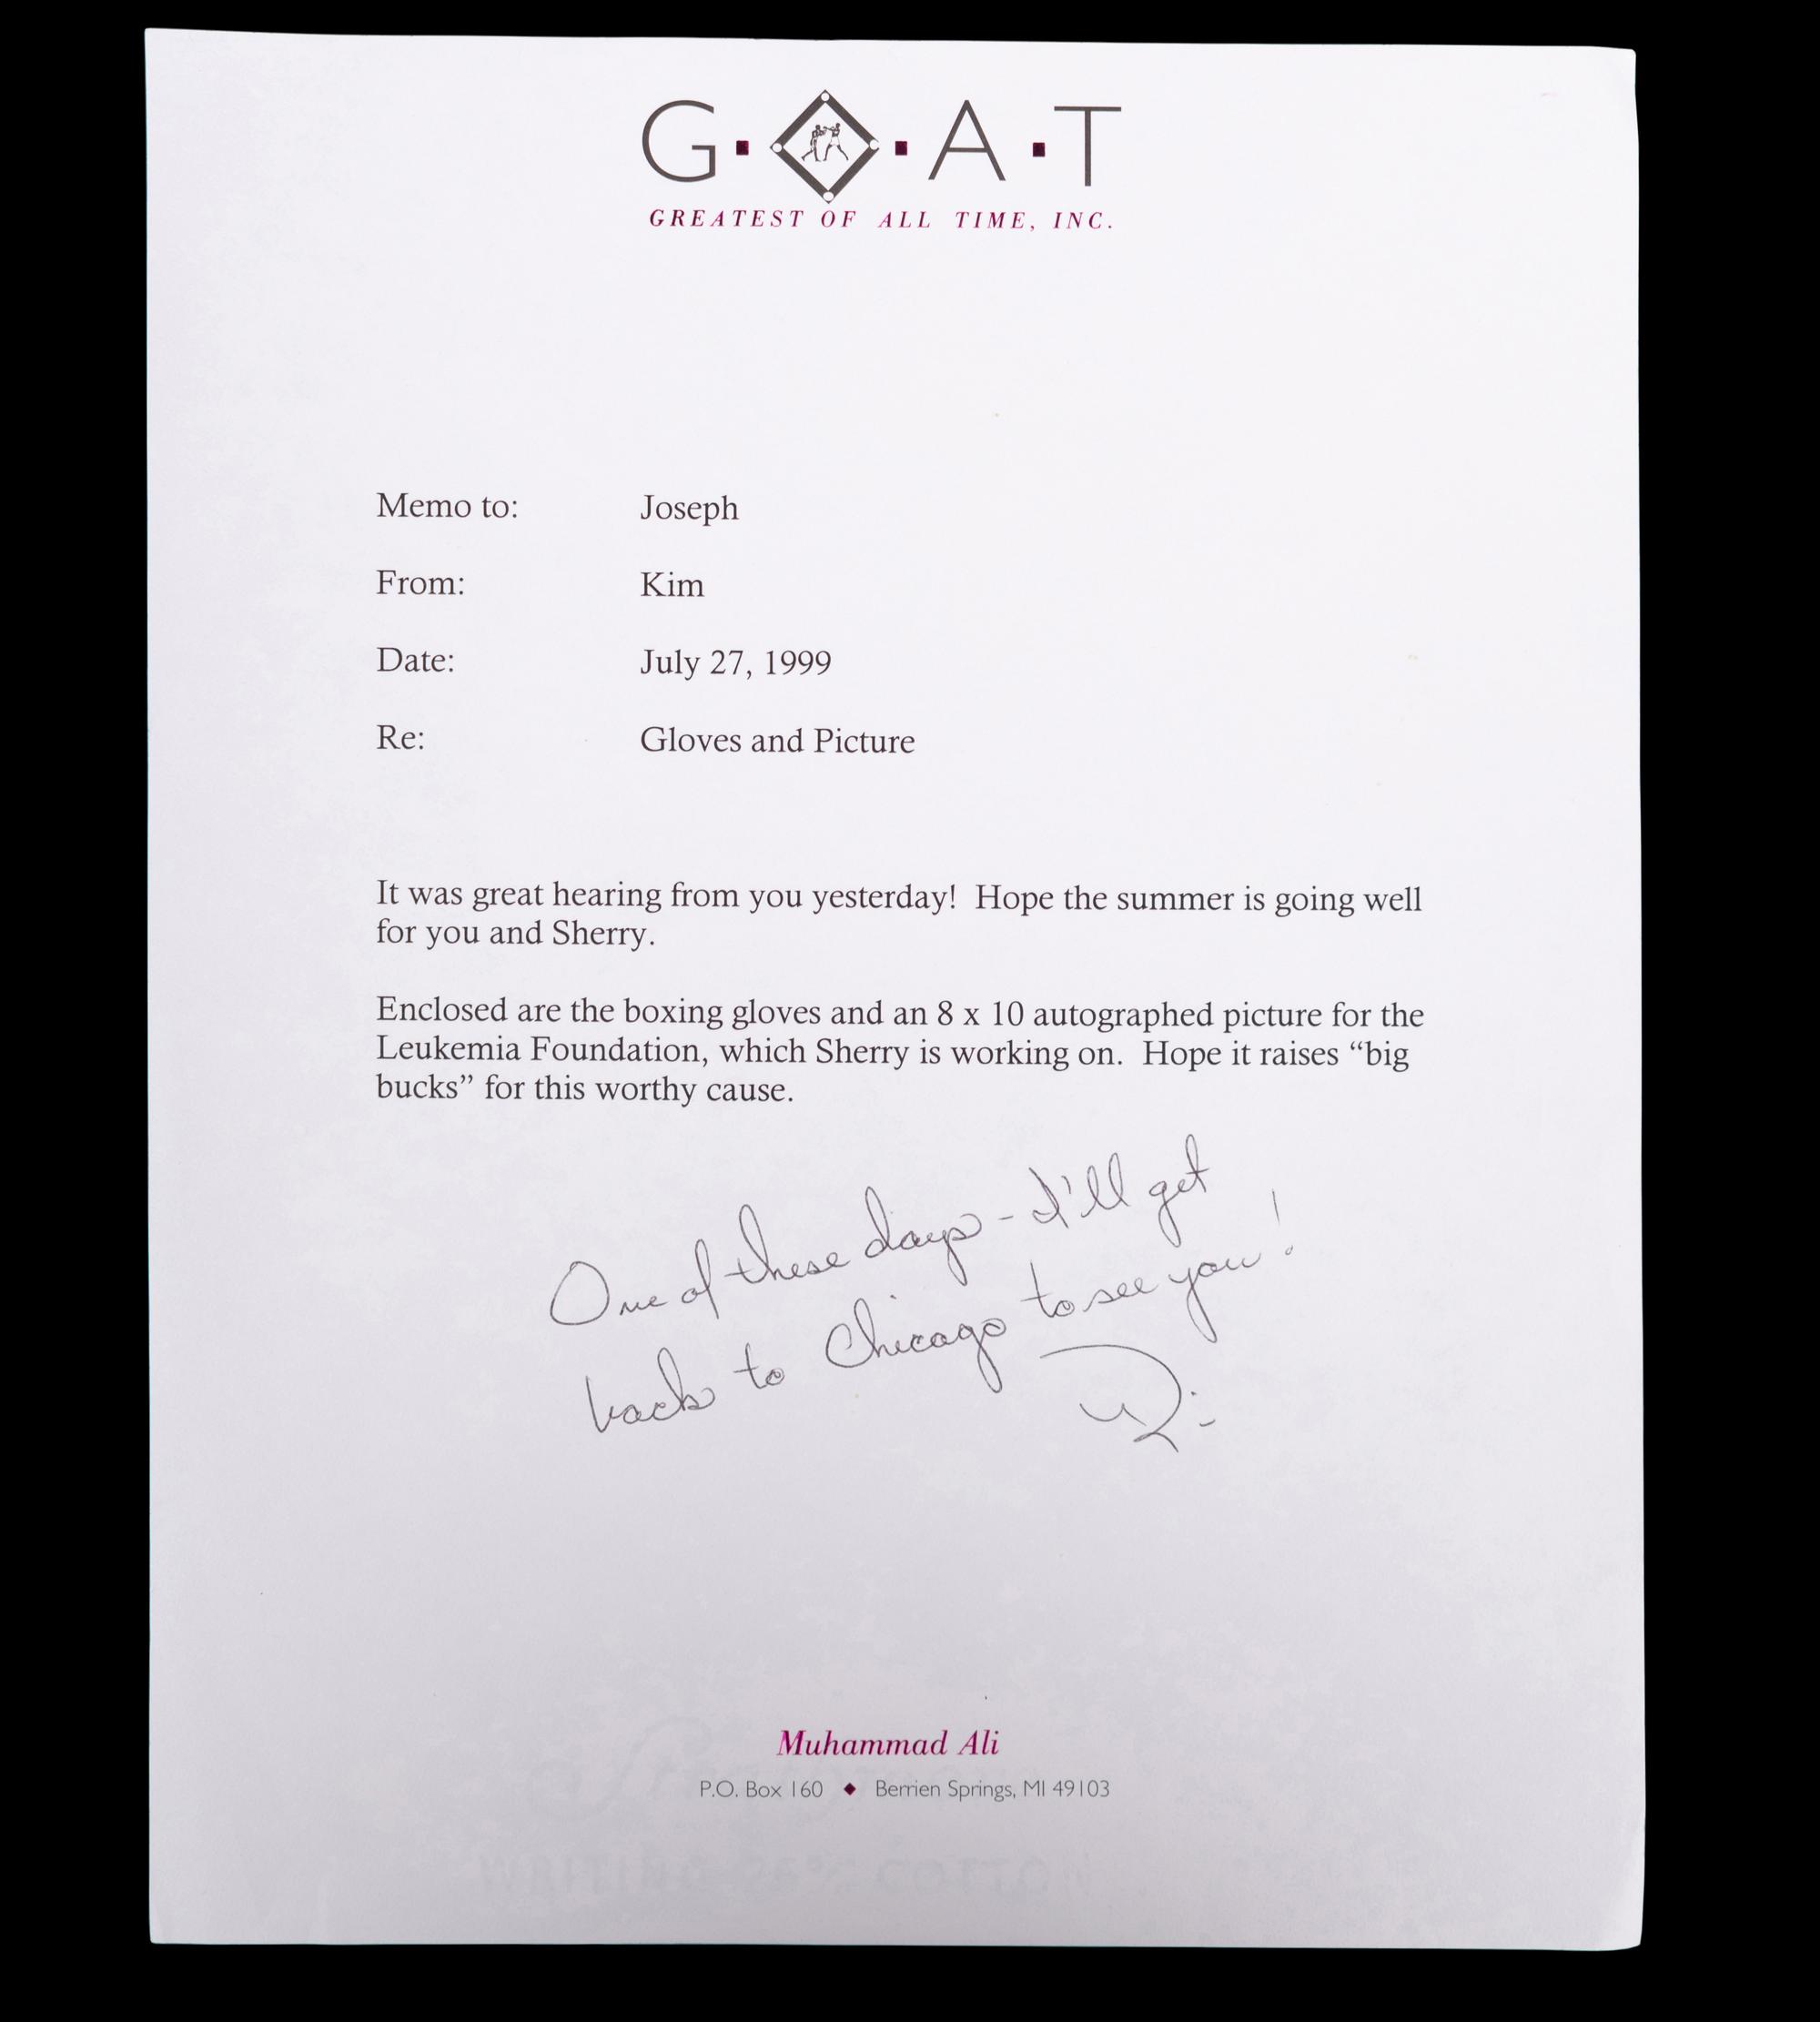 G · O · A · T
GREATEST OF ALL TIME, INC.
Memo to: Joseph
From: Kim
Date: July 27, 1999
Re: Gloves and Picture
It was great hearing from you yesterday!  Hope the summer is going well
for you and Sherry.
Enclosed are the boxing gloves and an 8 x 10 autographed picture for the
Leukemia Foundation, which Sherry is working on.  Hope it raises “big
bucks” for this worthy cause.
One of these days - I'll get
back to Chicago to see you!
Muhammad Ali
P.O. Box 160 ◆ Berrien Springs, MI 49103
WRITING 25% COTTON